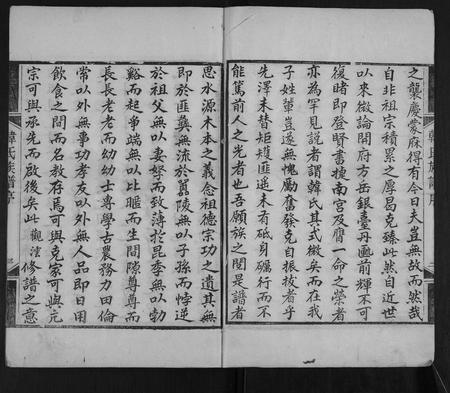 之襲慶蒙庥得有今日夫豈無故而然哉
自非祖宗積累之厚曷克臻此然自近世
以來微論開府方岳銀臺丹匭前輝不可
復睹即登賢書捷南宮及膺一命之榮者
亦為罕見說者謂韓氏其式微矣而在我
子姓輩豈遂無愧勵奮發克自振拔者乎
先澤未替矩矱匪遙未有砥身礪行而不
能篤前人之光者也吾願族之閱是譜者
思水源木本之義念祖德宗功之遺其無
即於匪彝無流於覬陵無以子孫而悖逆
於祖父無以妻孥而致薄於昆季無以勃
谿而起爭端無以比暱而生間隙尊尊而
長長老老而幼幼士專學古農務力田倫
常以外無事功孝友以外無人品即日用
飲食之間而名教存焉可與克家可與亢
宗可與承先而啟後矣此觀瀅修譜之意
韓氏族譜序
韓氏族譜序